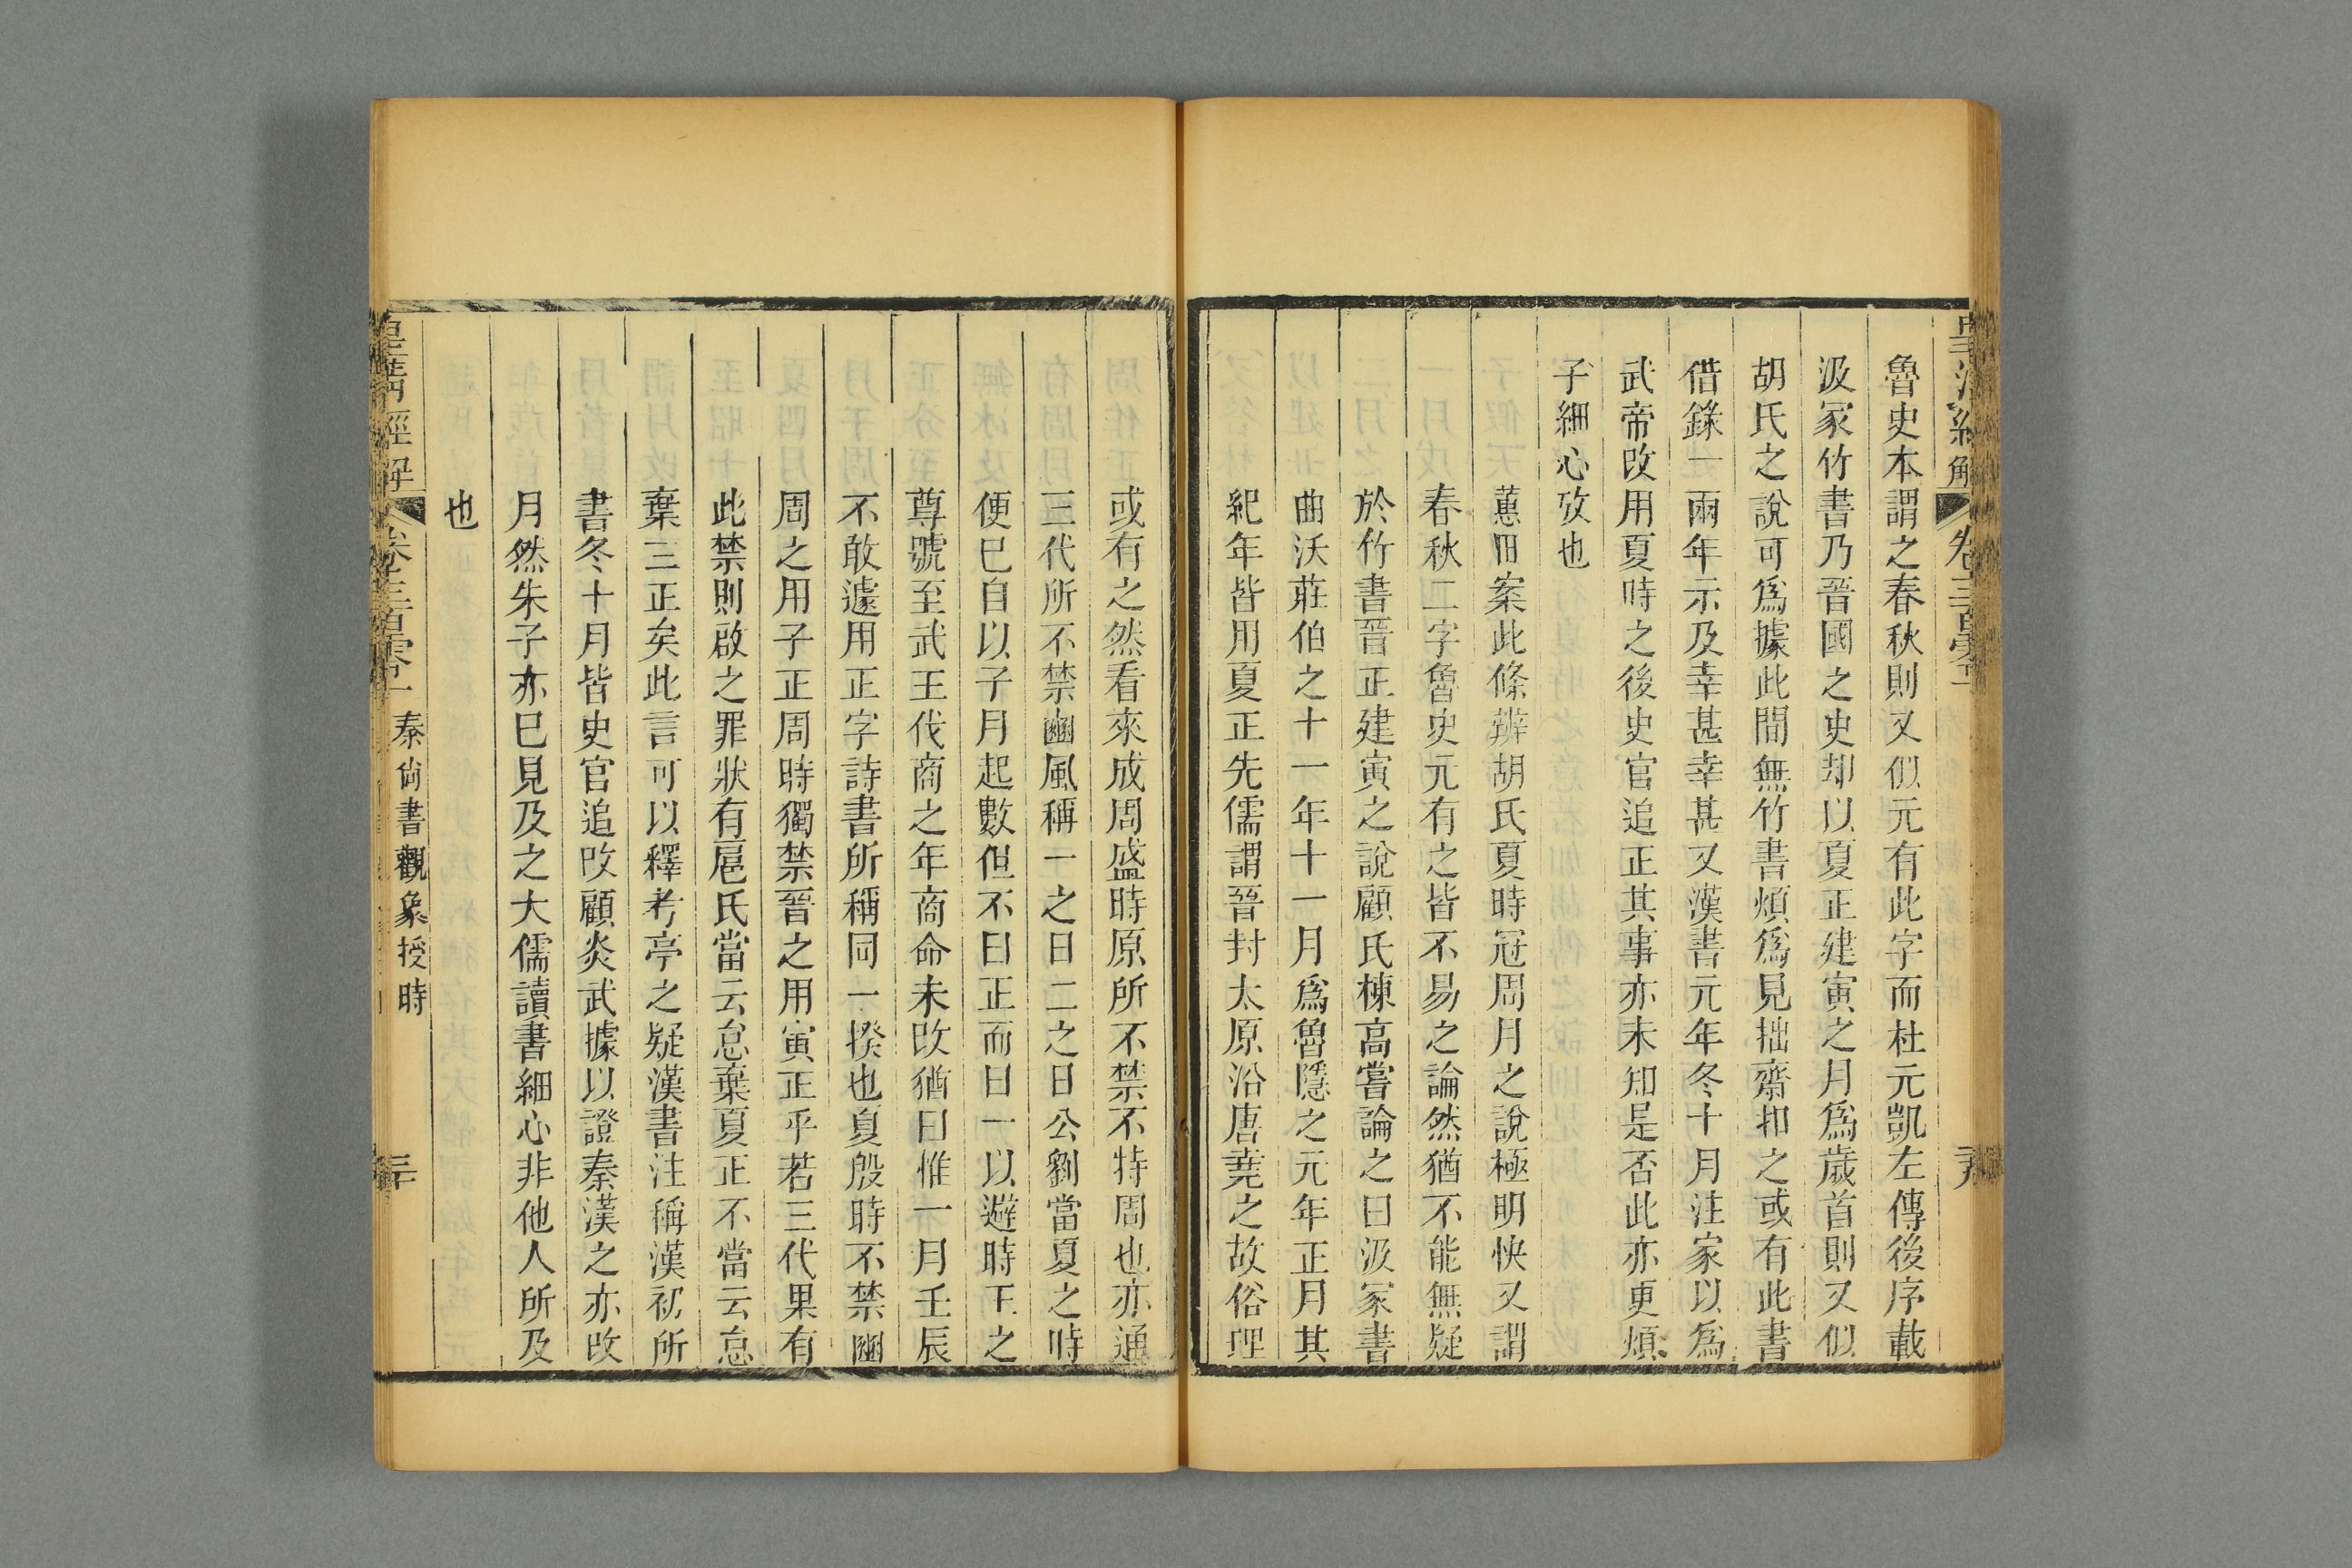 皇清經解
卷三百零一
魯史本謂之春秋則又似元有此字而杜元凱左傳後序載
汲冢竹書乃晉國之史却以夏正建寅之月爲歲首則又似
胡氏之說可爲據此間無竹書煩爲見拙齋扣之或有此書
借錄一兩年示及幸甚幸甚又漢書元年冬十月注家以爲
武帝改用夏時之後史官追正其事亦未知是否此亦更煩
子細心攷也
蕙田案此條辨胡氏夏時冠周月之說極明快又謂
春秋二字魯史元有之皆不易之論然猶不能無疑
於竹書晉正建寅之說顧氏棟高嘗論之曰汲冢書
曲沃莊伯之十一年十一月爲魯隱之元年正月其
紀年皆用夏正先儒謂晉封太原沿唐堯之故俗理
或有之然看來成周盛時原所不禁不特周也亦通
三代所不禁豳風稱一之日二之日公劉當夏之時
便已自以子月起數但不曰正而曰一以避時王之
尊號至武王伐商之年商命未改猶曰惟一月壬辰
不敢遽用正字詩書所稱同一揆也夏殷時不禁豳
周之用子正周時獨禁晉之用寅正乎若三代果有
此禁則啟之罪狀有扈氏當云怠棄夏正不當云怠
棄三正矣此言可以釋考亭之疑漢書注稱漢初所
書冬十月皆史官追改顧炎武據以證秦漢之亦改
月然朱子亦已見及之大儒讀書細心非他人所及
也
皇淸經解
卷二百零一
秦尙書觀象授時
三十